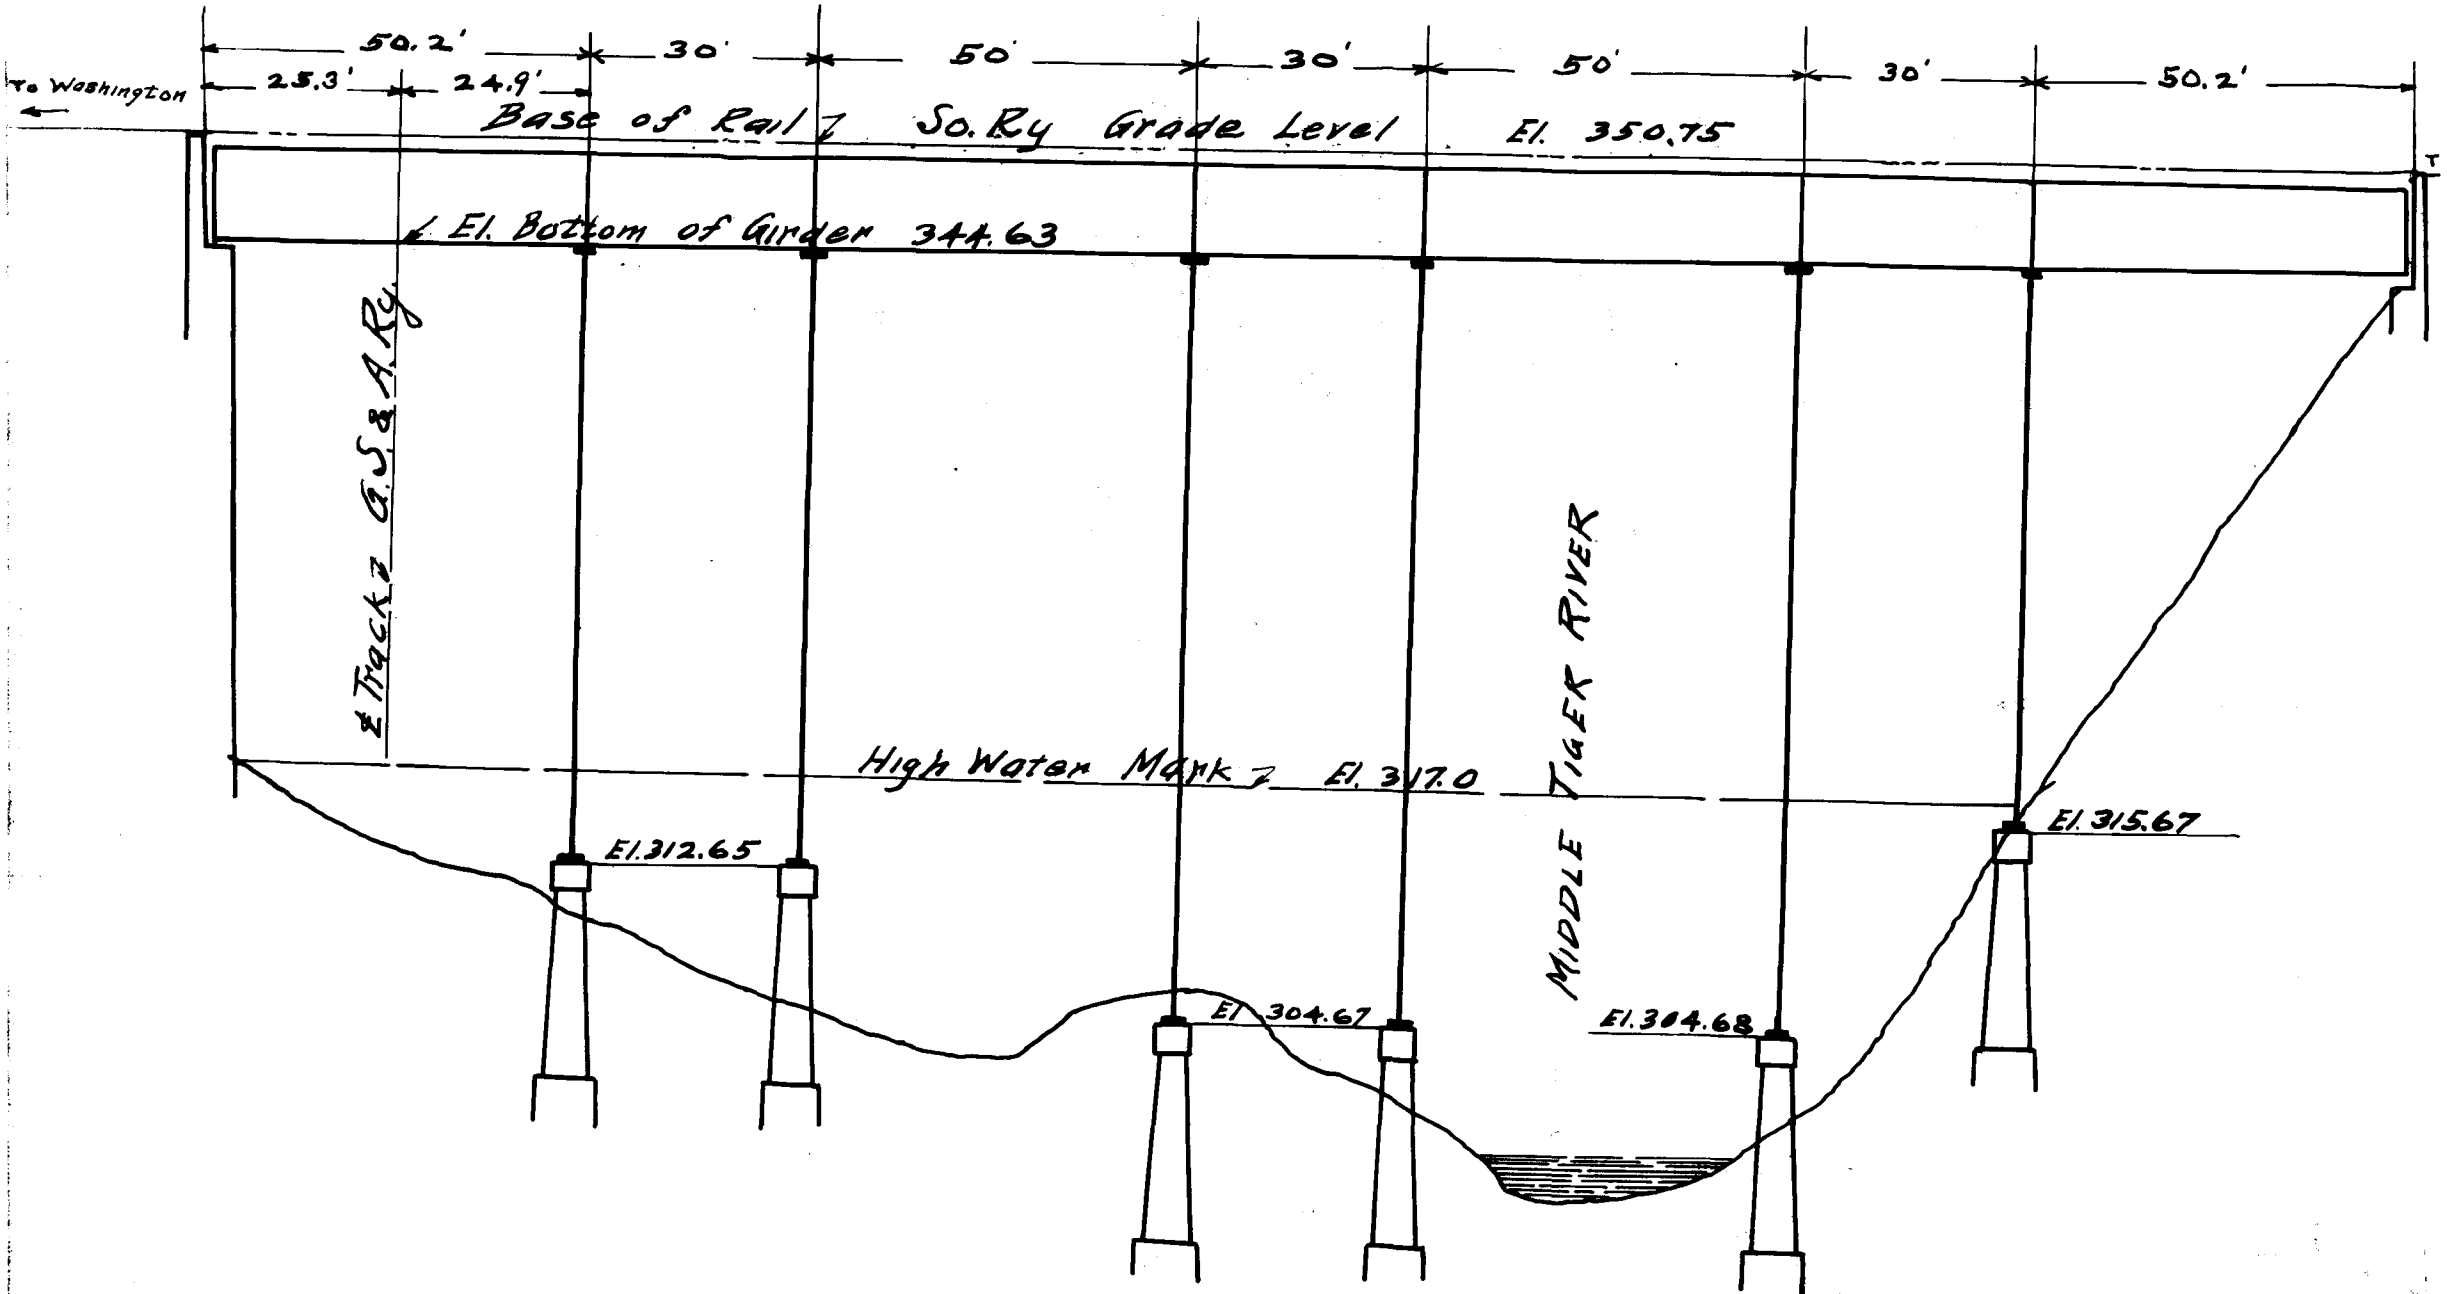 50.2' 30' 50' 30' 50' 30' 50.2'
To Washington
25.3' 24.9'
Base of Rail So. Ry Grade Level El. 350.75
T
El. Bottom of Girder 344.63
℄ Track G.S.& A.Ry.
MIDDLE TIGER RIVER
High Water Mark El. 317.0
El. 315.67
El. 312.65
El. 304.67
El. 304.68